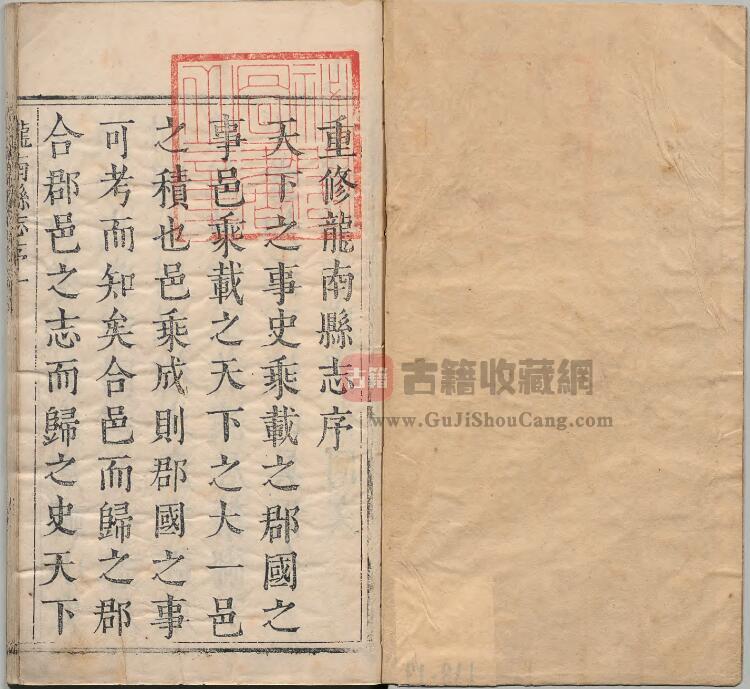 重修龍南縣志序
天下之事史乘載之郡國之
事邑乘載之天下之大一邑
之積也邑乘成則郡國之事
可考而知矣合邑而歸之郡
合郡邑之志而歸之史天下
龍南縣志序一
古籍 古籍收藏網
www.GuJiShouCang.com